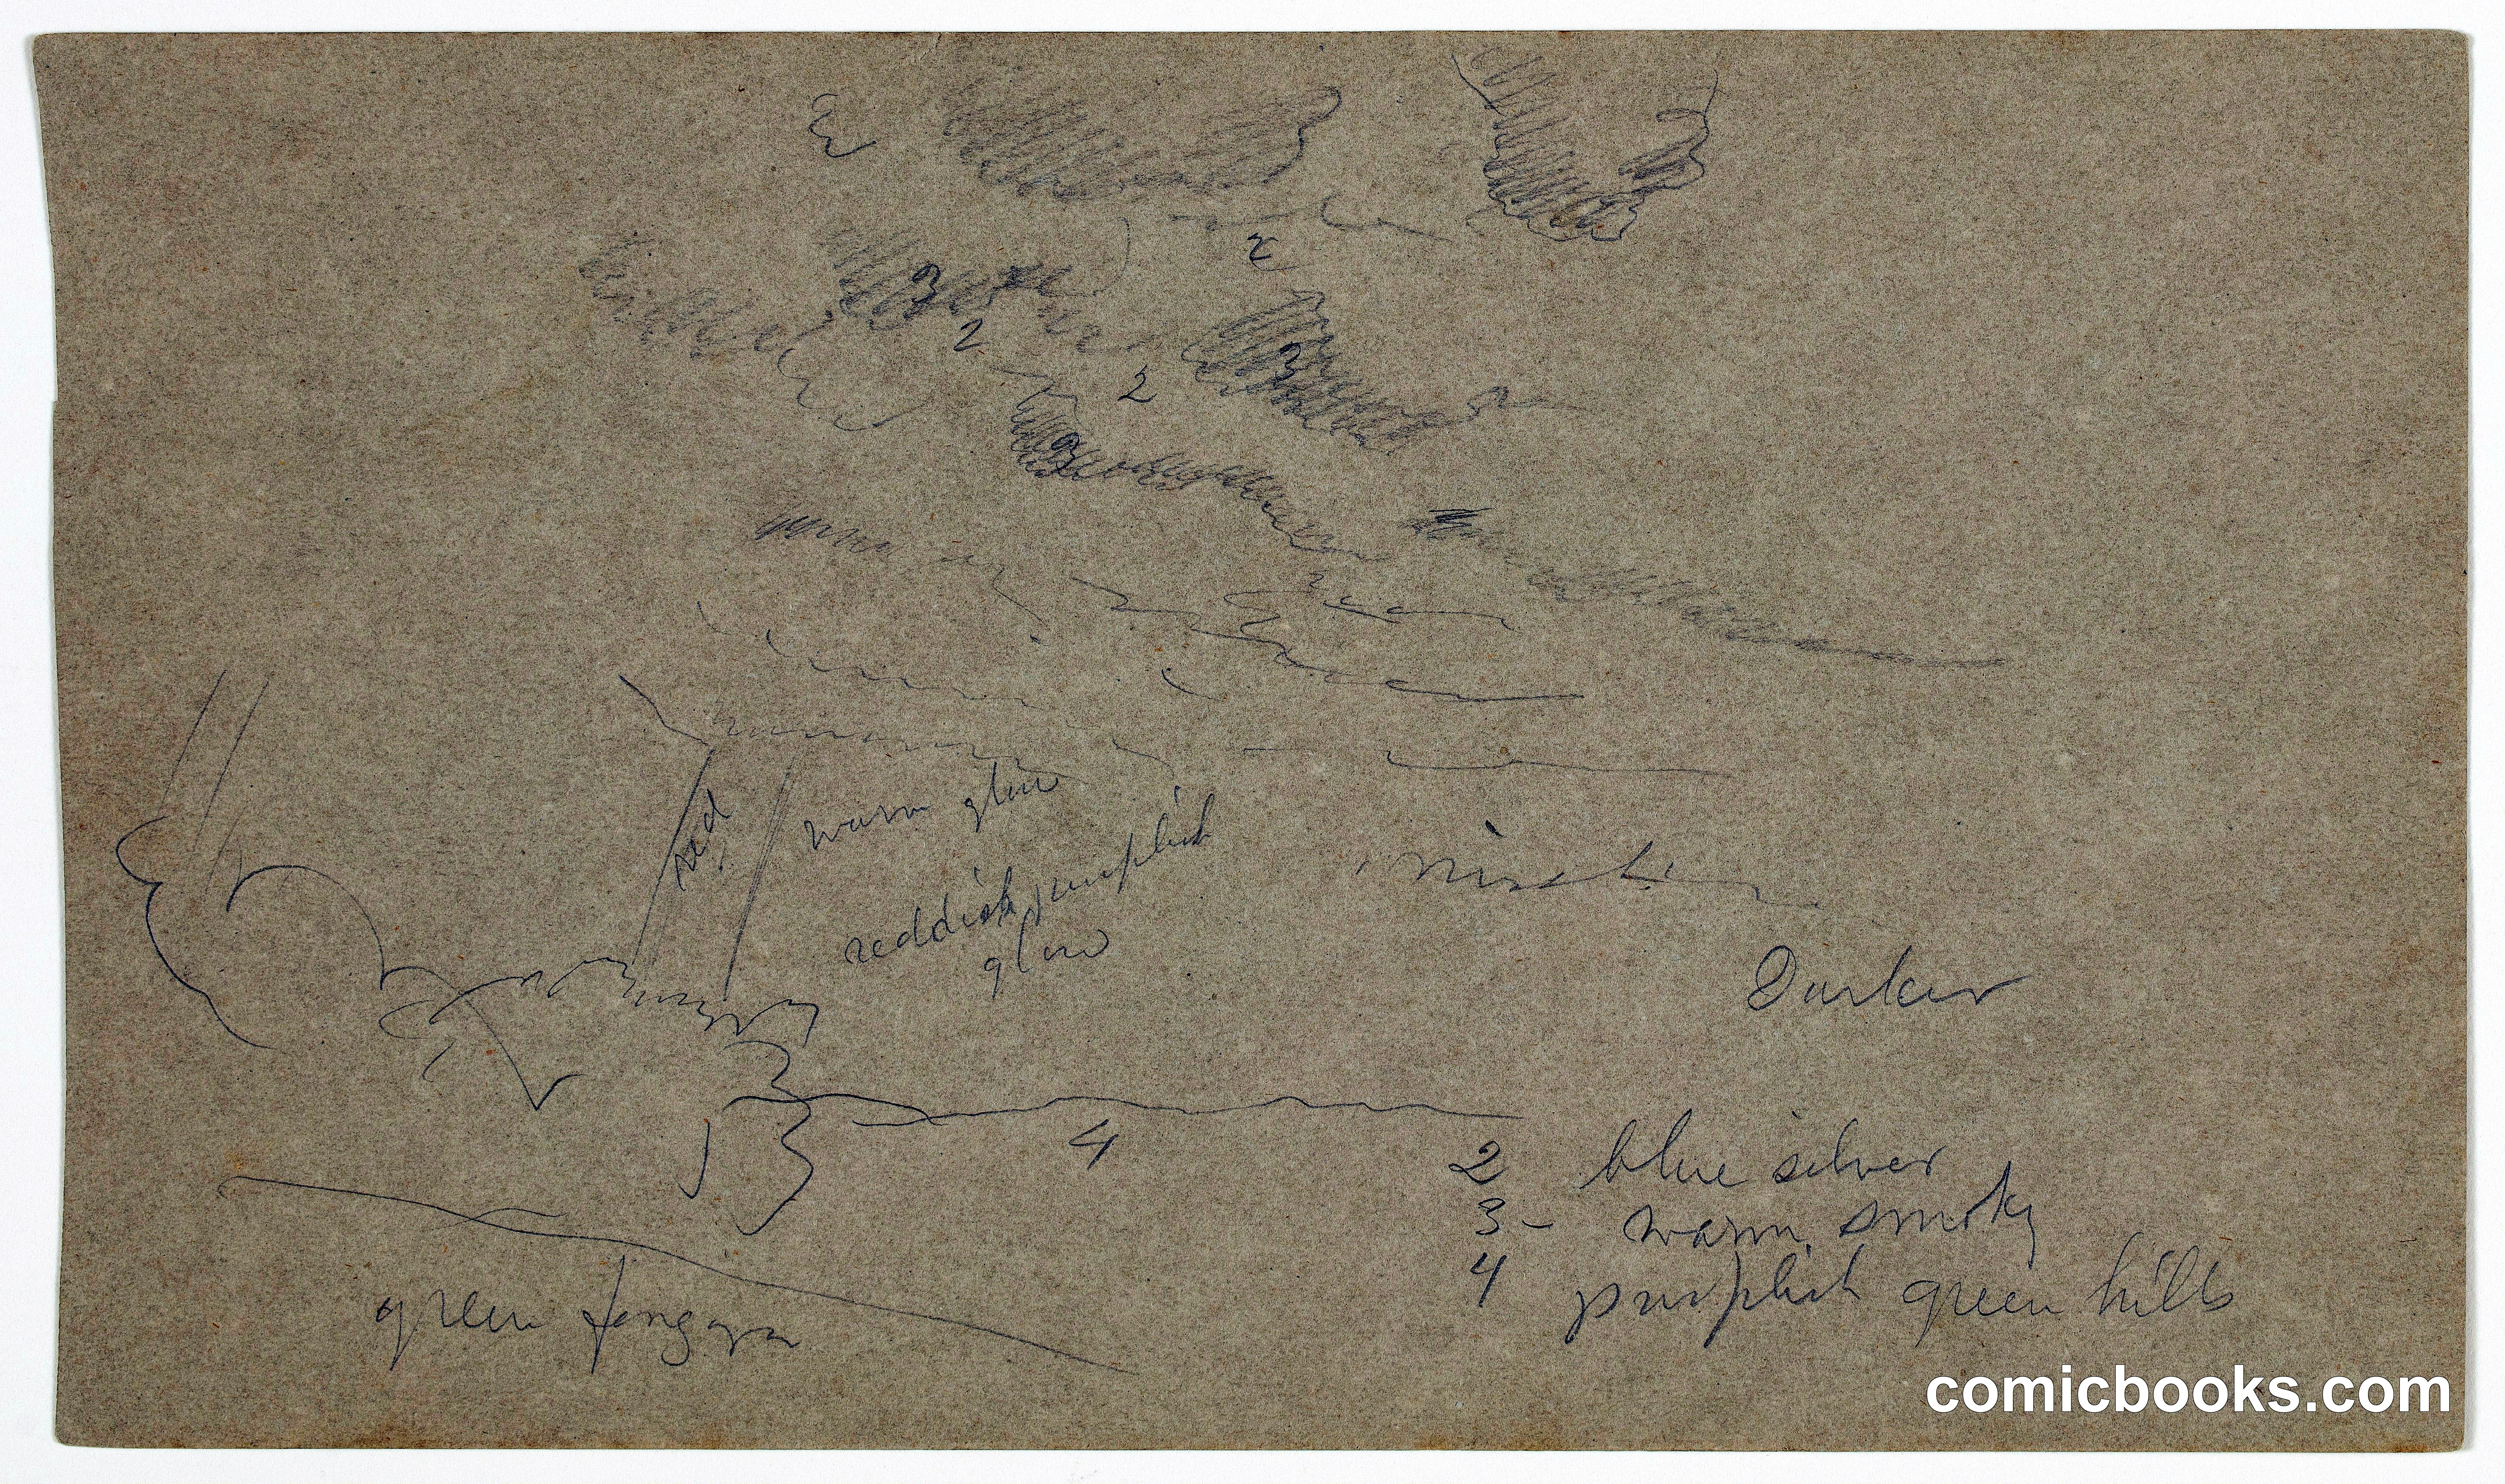 2
3
2
3
2
3
red
warm glow
reddish purplish
glow
Darker
4
2 blue silver
3 - warm smoky
4 purplish green hills
green
comicbooks.com